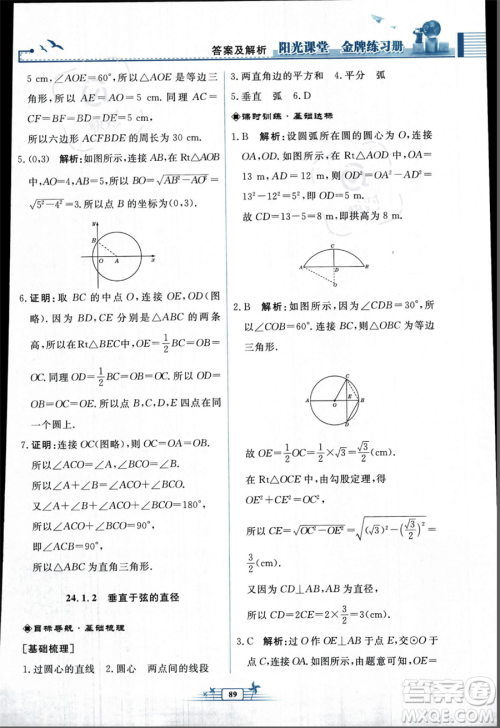 答案及解析 阳光课堂 金牌练习册
5 cm，∠AOE=60°，所以△AOE为等边三
角形，所以 AE=AO=5 cm. 同理 AC=
CF=BF=BD=DE=5 cm，
所以六边形 ACFBDE 的各边相等.
5. (0,3) 解析：如图所示，在Rt△AOB中，因
为AO=4，AB=5，所以BO=√(AB²-AO²)=
√(5²-4²)=3，所以 B 的坐标为(0,3).
y
B
O A x
6. 证明：取 BC 的中点 O，连接 OE，OD(图
略). 因为 BD，CE 是△ABC 的两条
高，所以在 Rt△BEC中，OE=1/2BC=OB=
OC. 同理 OD=1/2BC=OB=OC，所以 OE=
OD=OB=OC，所以 E，B，C，D 四点在同
一个圆上.
7. 证明：连接 OC(图略)，则 OA=OC=OB，
所以∠ACO=∠A，∠BCO=∠B，
所以∠ACO+∠BCO=∠A+∠B.
又∠A+∠B+∠ACO+∠BCO=180°，
所以∠ACO+∠BCO=90°，
即∠ACB=90°，
所以△ABC为直角三角形.
24.1.2 垂直于弦的直径
目标导航·基础梳理
[基础梳理]
1. 过圆心的直线 2. 圆心 两点间的线段
3. 两直角边的平方和 4. 平分 弧
5. 垂直 弧 6. D
课时训练·基础达标
1. B 解析：设圆弧所在圆的圆心为O，连接
OA，OD，如图所示，在Rt△ADO中，OA=
13 m，AD=12 m，所以
13²=12²+OD²，所以OD=5 m，
故 CD=13-5=8 m，即拱高为 8 m.
C
A D B
O
2. B 解析：如图所示，连接 OC，因为
∠CDB=30°，所以
∠COB=60°，所以△COB为等边
三角形.
C
A O E B
D
故 OE=1/2OC=1/2×√3=√3/2(cm).
在 Rt△OCE 中，由勾股定理，得
OE²+CE²=OC²，
所以 CE=√(OC²-OE²)=√((√3)²-(√3/2)²)
=3/2(cm)，
故 CD=2CE=3(cm).
3. C 解析：如图所示，由题意可知，
89